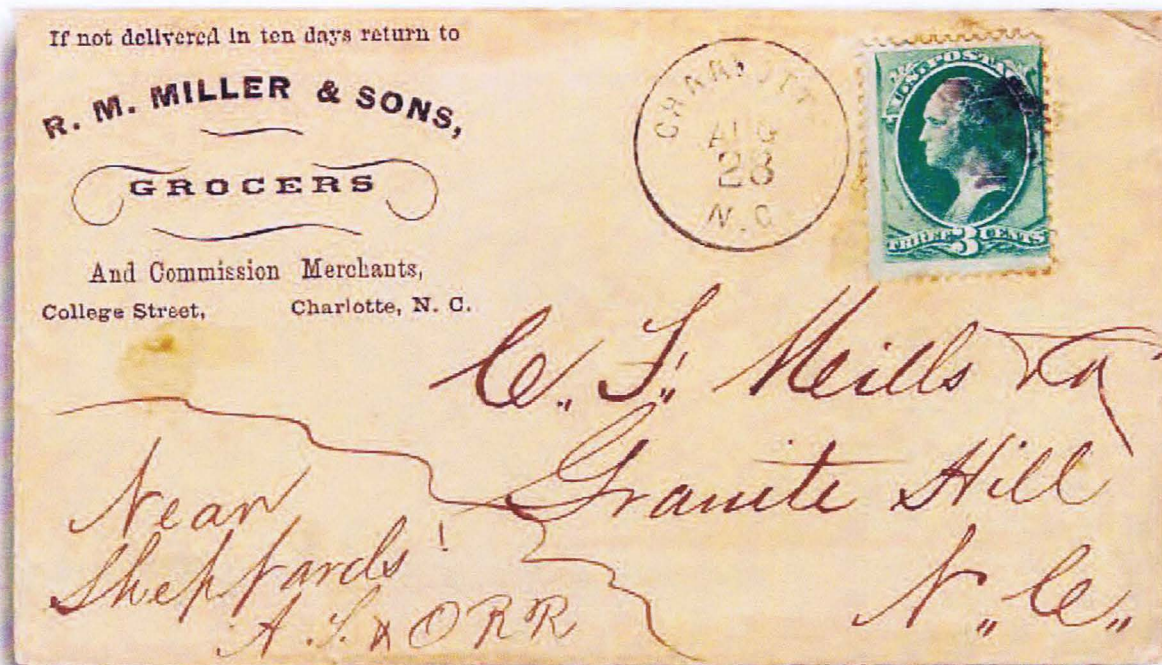 If not delivered in ten days return to
R. M. MILLER & SONS,
GROCERS
And Commission Merchants,
College Street, Charlotte, N. C.
CHARLOTTE
AUG
28
N.C.
U.S. POSTAGE
THREE 3 CENTS
C. F. Mills
Granite Hill
N. C.
Near
Sheppards!
A. T. & O R R